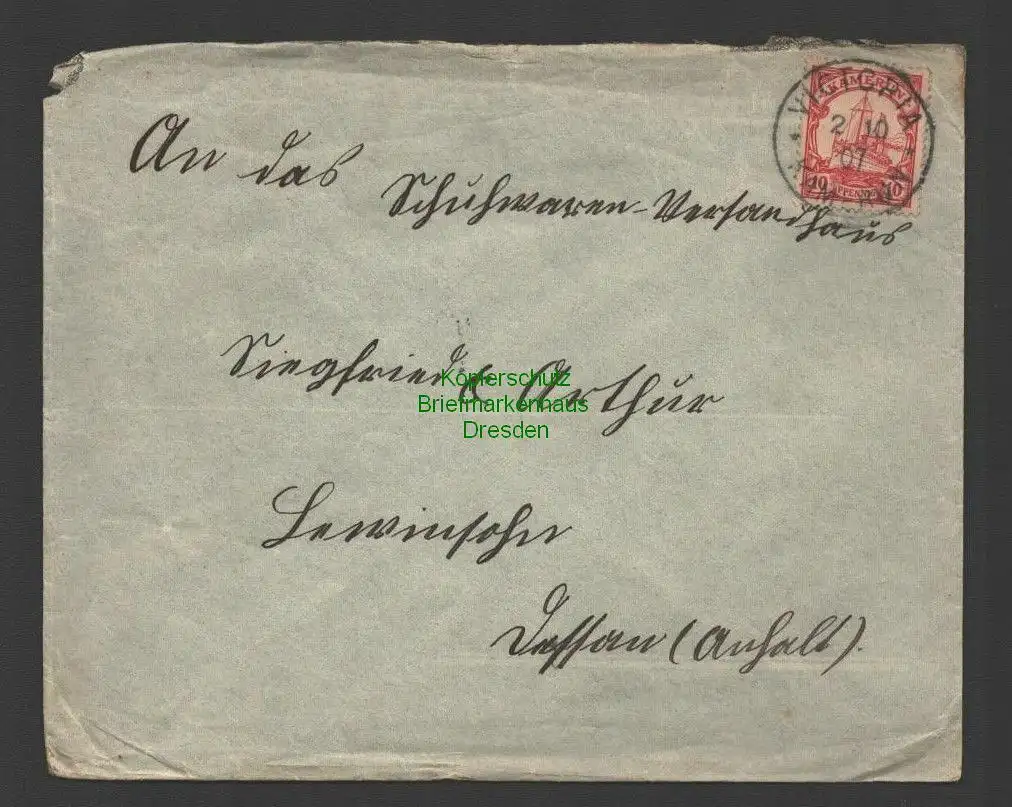 KAMERUN
10 PFENNIG 10
VICTORIA
2 10
07
KAMERUN
An das
Schuhwaren-Versandhaus
Siegfried & Arthur
Kopierschutz
Briefmarkenhaus
Dresden
Lewinsohn
Dessau (Anhalt).